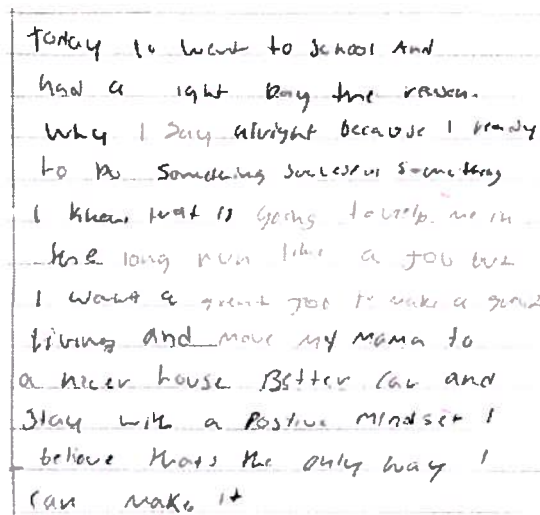 today I went to school And
had a ight Day the reason.
Why I Say alright because I ready
to Do Something successful something
I know that is going to help me in
the long run like a JOB but
I want a great JOB to make a good
living and move my mama to
a nicer house Better Car and
Stay with a Postive Mindset I
believe thats the only way I
Can make it